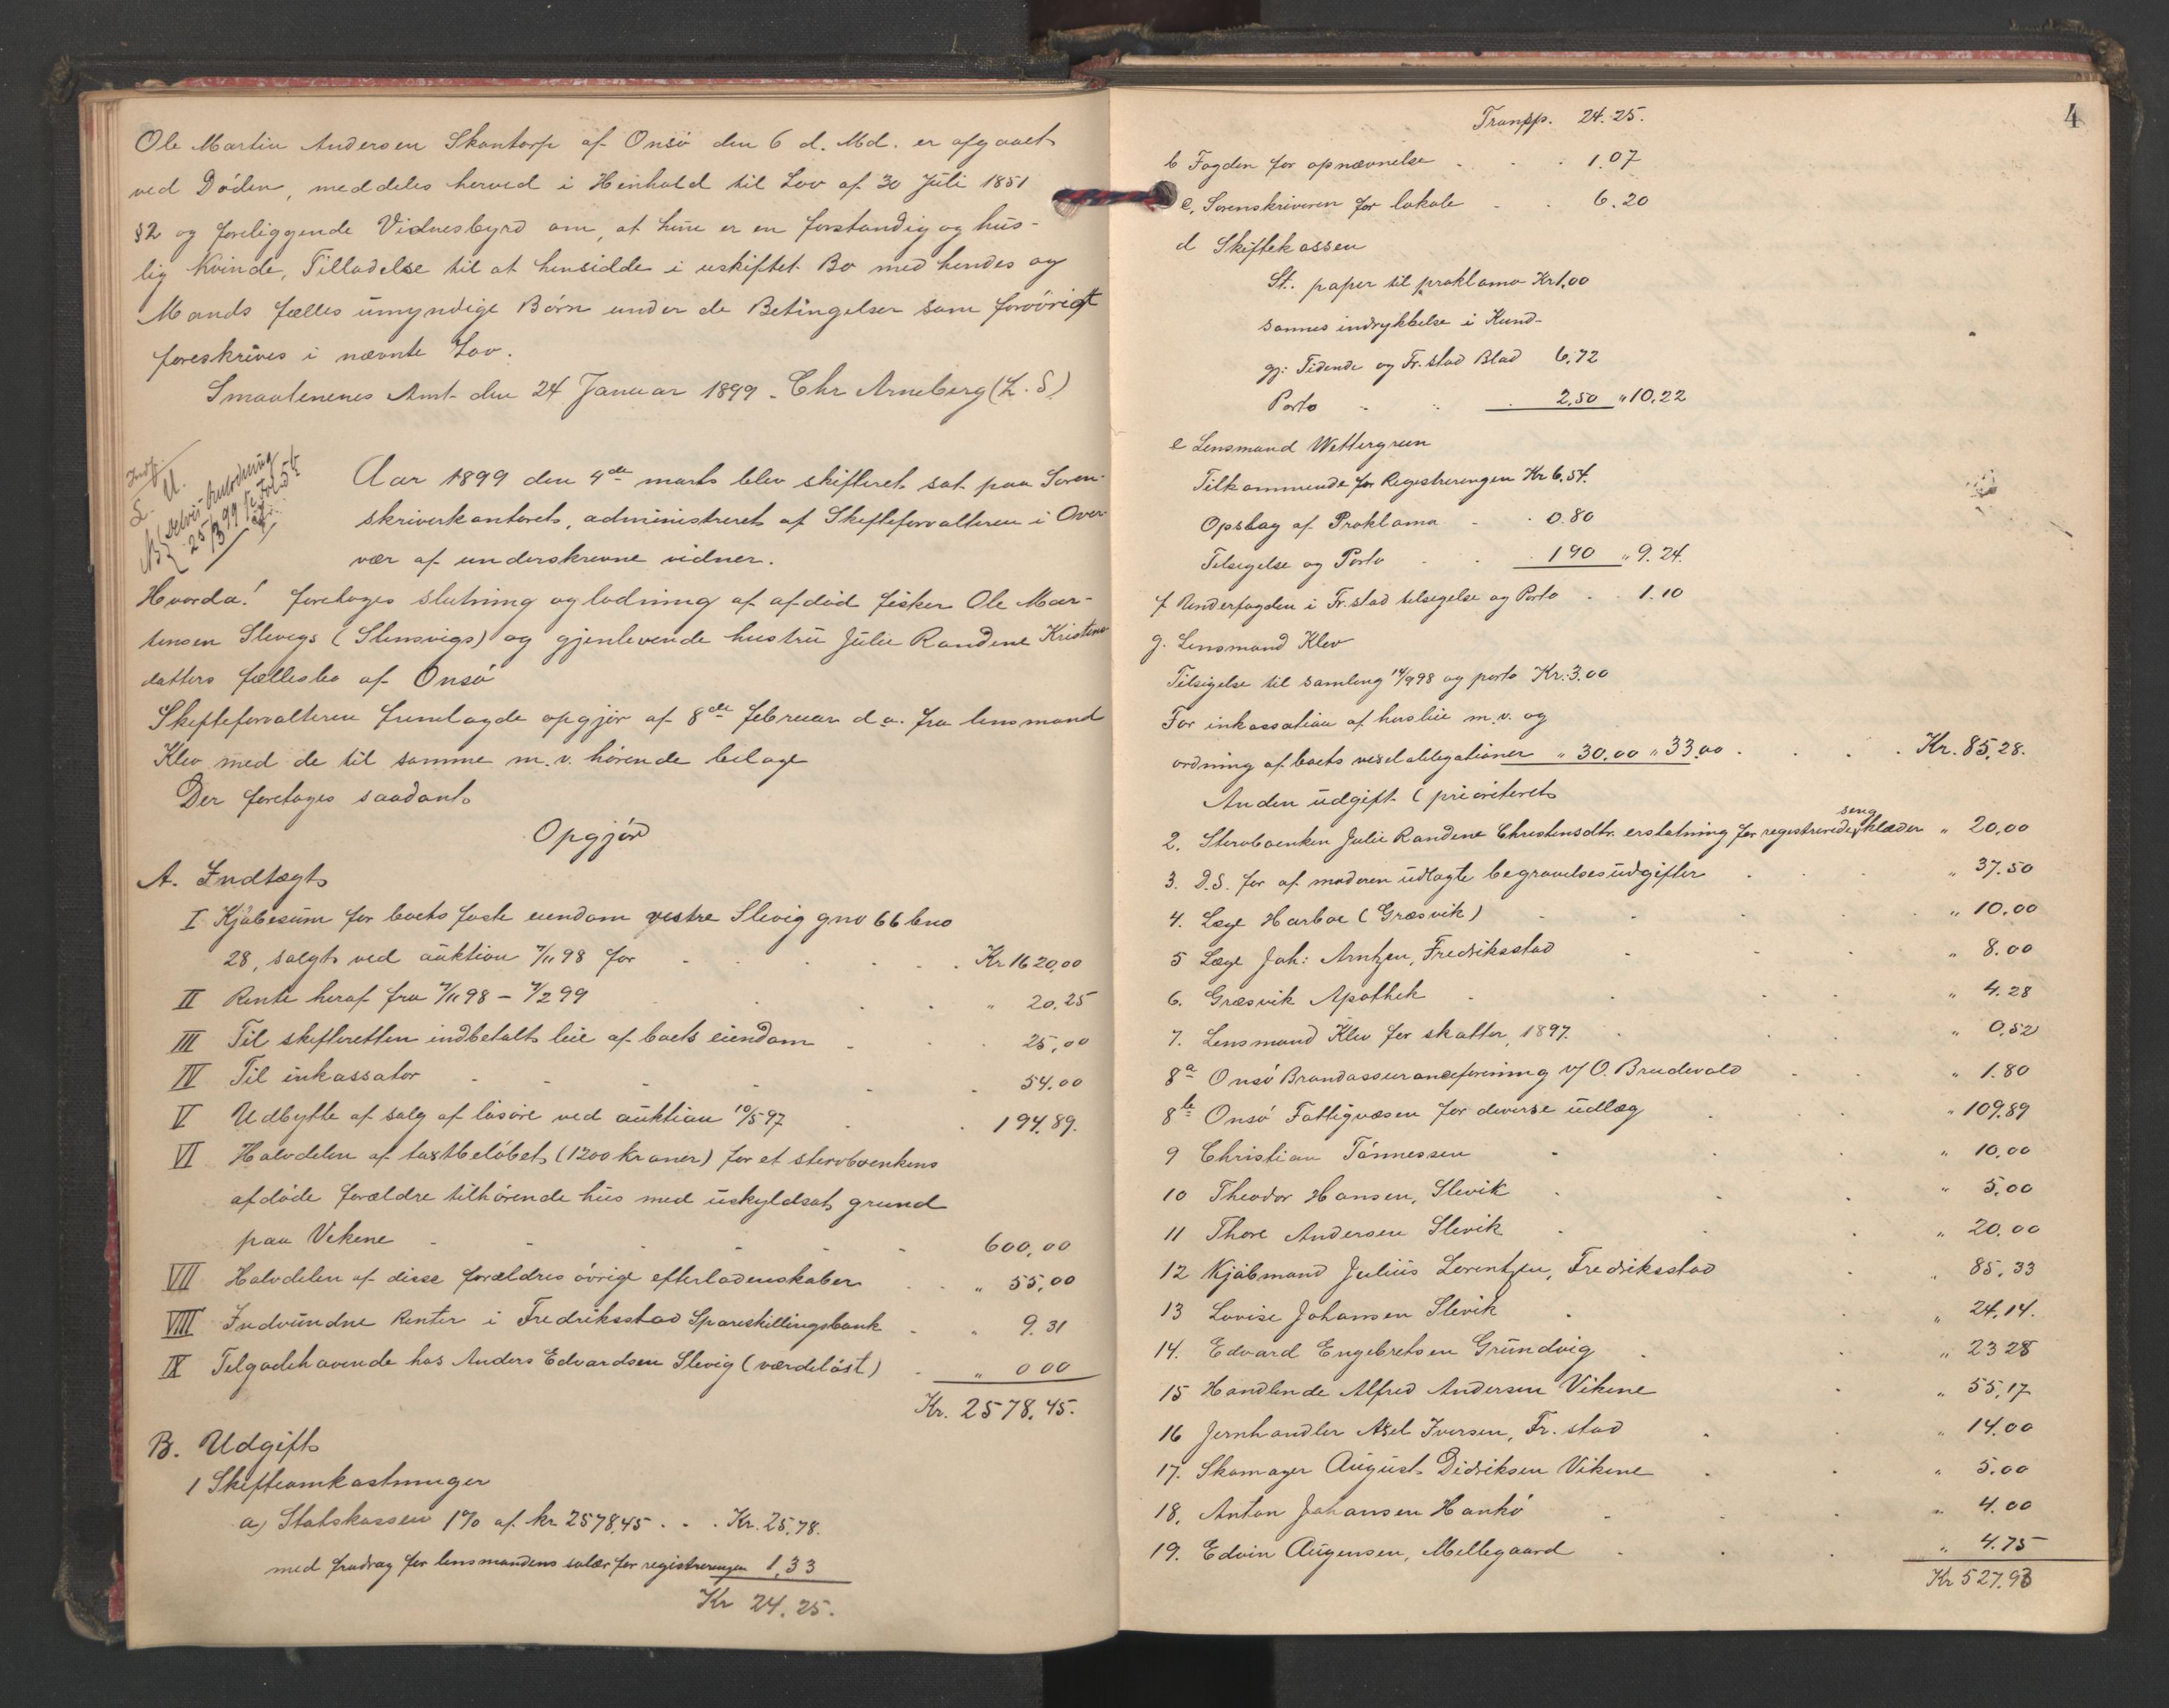 Ole Martin Andersen Skantorp af Onsö den 6 d. Md. er afgaaet
ved Döden, meddeles herved i Henhold til Lov af 30 Juli 1851
§2 og foreliggende Vidnesbyrd om, at hun er en forstandig og hus-
lig Kvinde, Tilladelse til at hensidde i uskiftet Bo med hendes og
Mands fælles umyndige Börn under de Betingelser som forövrigt
foreskrives i nævnte Lov.
Smaalenenes Amt den 24 Januar 1899. Chr Arneberg (L. S)
25/3 99
Aar 1899 den 4de marts blev skifteret sat paa Soren-
skriverkontoret, administreret af Skifteforvalteren i Over-
vær af underskrevne vidner.
Hvorda! foretoges slutning og lodning af afdöd fisker Ole Mar-
tinsen Slevigs (Slensvigs) og gjenlevende hustru Julie Randene Kristens-
datters fællesbo af Onsö
Skifteforvalteren fremlagde opgjör af 8de februar d.a. fra lensmand
Klev med de til samme m.v. hörende bilage
Der foretoges saadant
Opgjör
A. Indtægt
I Kjöbesum for boets faste eiendom vestre Slevig gno 66 bno
28, solgt ved auktion 7/11 98 for Kr 1620,00
II Rente heraf fra 7/11 98 - 7/2 99 " 20.25
III Til skifteretten indbetalt leie af boets eiendom 25,00
IV Til inkassator 54.00
V Udbytte af salg af lösöre ved auktion 10/5 97 194,89.
VI Halvdelen af taxtbelöbet (1200 kroner) for et stervboenkens
afdöde forældre tilhörende hus med uskyldsat grund
paa Vikene 600,00
VII Halvdelen af disse forældres övrige efterladenskaber " 55,00
VIII Indvundne Renter i Fredriksstad Spareskillingsbank " 9.31
IX Tilgodehavende hos Anders Edvardsen Slevig (værdilöst) " 0 00
Kr. 2578,45.
B. Udgift
1 Skifteomkostninger
a) Statskassen 1% af kr 2578,45 . . . Kr. 25,78.
med fradrag for lensmandens salær for registreringen 1,33
Kr 24.25.
4
Transp. 24.25.
b Fogden for opnævnelse 1.07
c, Sorenskriveren for lokale 6.20
d Skiftekassen
St. papir til proklama Kr 1,00
sammes indrykkelse i Kund-
gj: Tidende og Fr.stad Blad 6,72
Porto 2,50 " 10,22
e Lensmand Wettergreen
Tilkommende for Registreringen Kr 6,54.
Opslag af Proklama 0.80
Tilsigelse og Porto 1 90 " 9.24.
f Underfogden i Fr.stad tilsigelse og Porto 1.10
g. Lensmand Klev
Tilsigelse til samling 14/9 98 og porto Kr. 3.00
For inkassation af husleie m.v. og
ordning af boets vexelobligationer " 30,00 " 33,00 . . . Kr. 85,28.
Anden udgift (prioriteret
2. Stervboenken Julie Randene Christensdtr. erstatning for registrerede sengklæder " 20,00
3. D.S. for af moderen udlagte begravelsesudgifter " 37.50
4. Læge Harboe (Græsvik) " 10.00
5 Læge Joh: Arntzen, Fredriksstad " 8.00
6. Græsvik Apothek " 4.28
7. Lensmand Klev for skatter, 1897. " 0,52
8a Onsö Brandassuranceforening v/ O. Brudevold " 1.80
8b Onsö Fattigvæsen for diverse udlæg " 109,89
9 Christian Tönnessen " 10,00
10 Theodor Hansen, Slevik " 5,00
11 Thore Andersen Slevik " 20.00
12 Kjöbmand Julius Lorentzen, Fredriksstad " 85,33
13 Lovise Johansen Slevik " 24,14.
14. Edvard Engebretsen Grundvig " 23 28
15 Handlende Alfred Andersen Vikene " 55,17
16 Jernhandler Axel Iversen, Fr. stad " 14.00
17. Skomager August Didriksen Vikene " 5.00
18, Anton Johansen Hankö " 4.00
19. Edvin Augensen, Mellegaard " 4.75
Kr 527.93